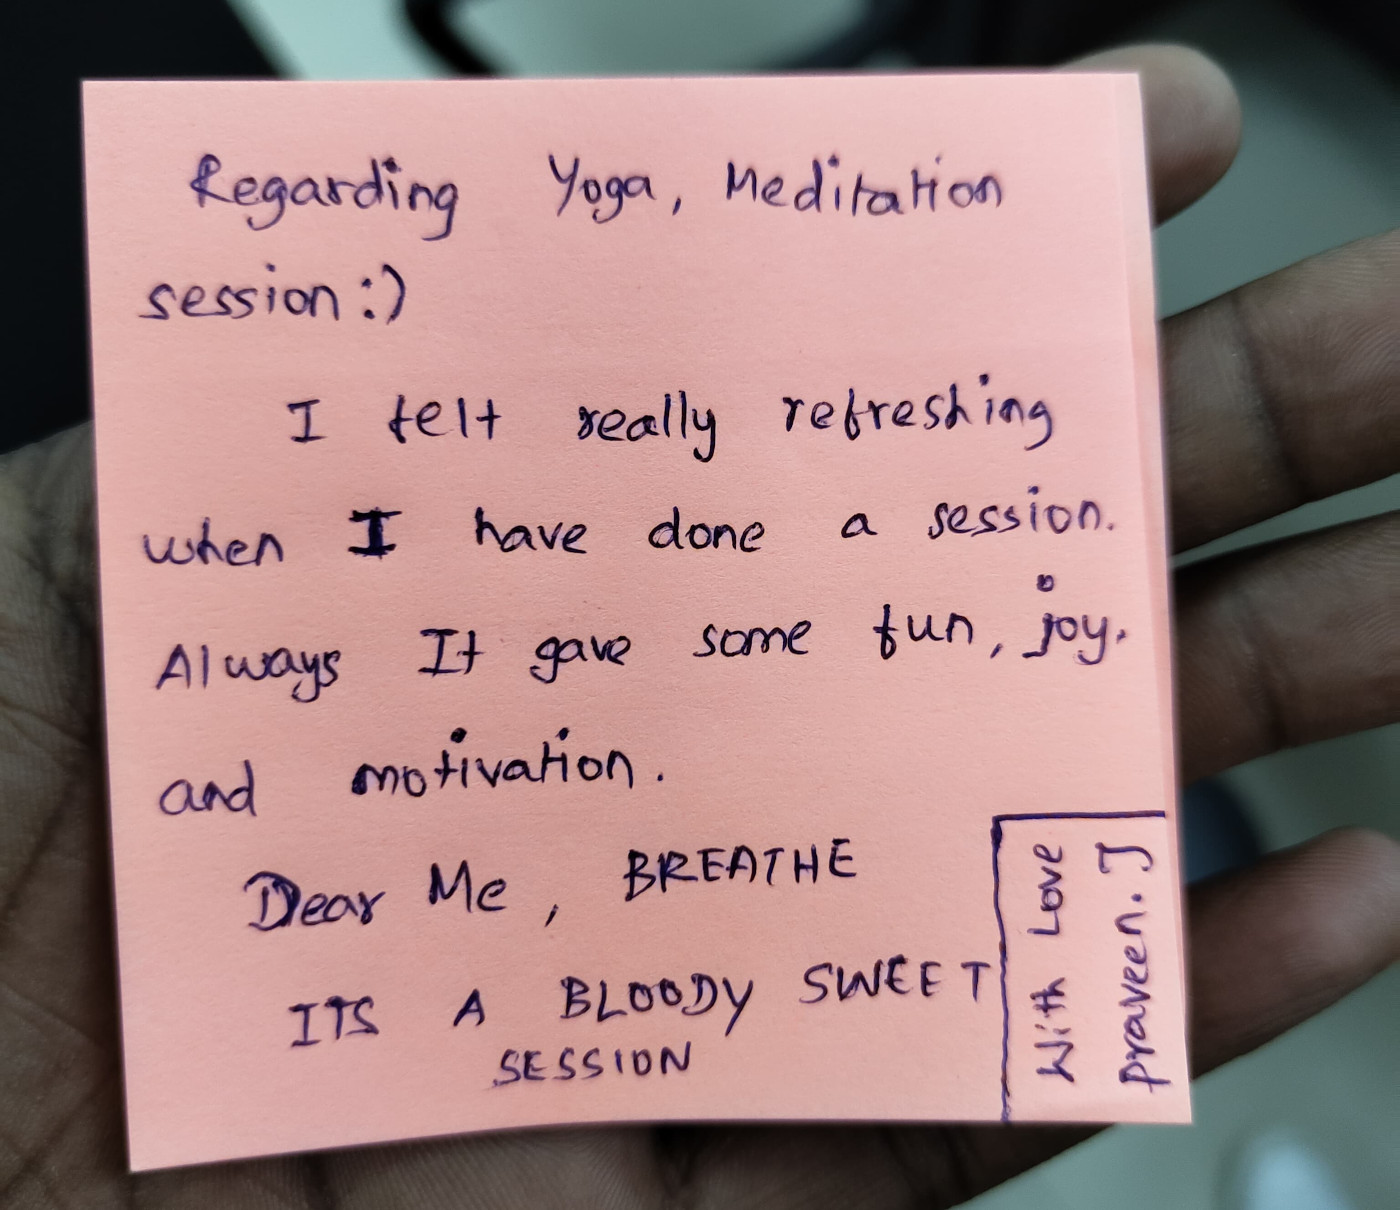 Regarding Yoga, Meditation
session :)
I felt really refreshing
when I have done a session.
Always It gave some fun, joy,
and motivation.
Dear Me, BREATHE
ITS A BLOODY SWEET
SESSION
With Love
Praveen. J